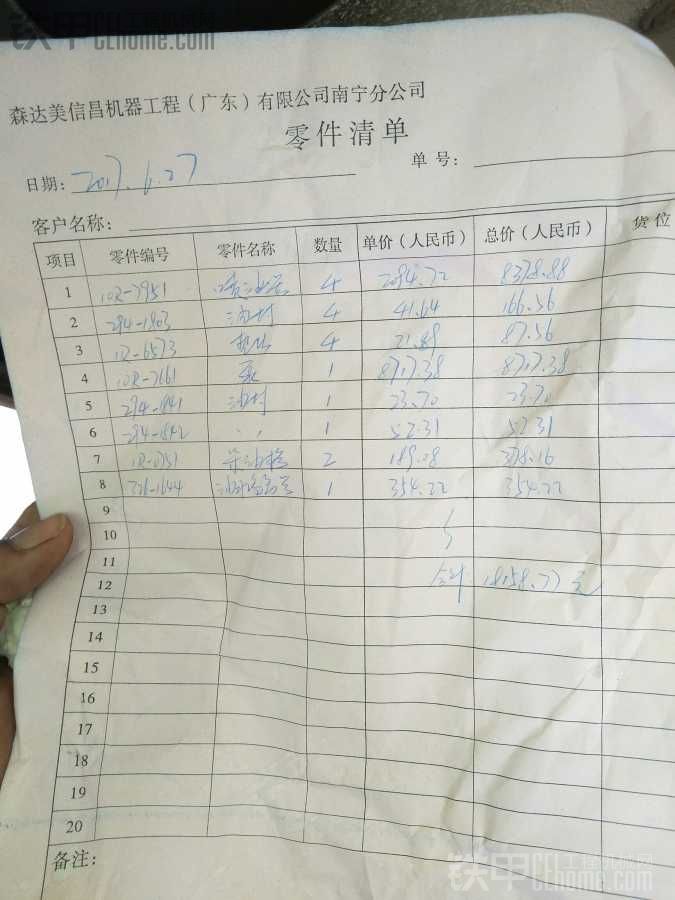 铁甲 工程机械网
CEhome.com
森达美信昌机器工程（广东）有限公司南宁分公司
零件清单
日期： 2017.6.27 单号：
客户名称：
项目 零件编号 零件名称 数量 单价（人民币） 总价（人民币） 货位
1 10R-7951 喷油器 4 2094.72 8378.88
2 294-1803 油封 4 41.64 166.56
3 4 21.89 87.56
4 10R-7661 泵 1 8717.38 8717.38
5 294-1841 油封 1 23.70 23.70
6 294-1842 〃 1 52.31 52.31
7 1R-0751 柴油格 2 189.08 378.16
8 326-1644 1 354.22 354.22
9
10
11
12 合计 18158.77元
13
14
15
16
17
18
19
20
备注：
铁甲 工程机械网
CEhome.com